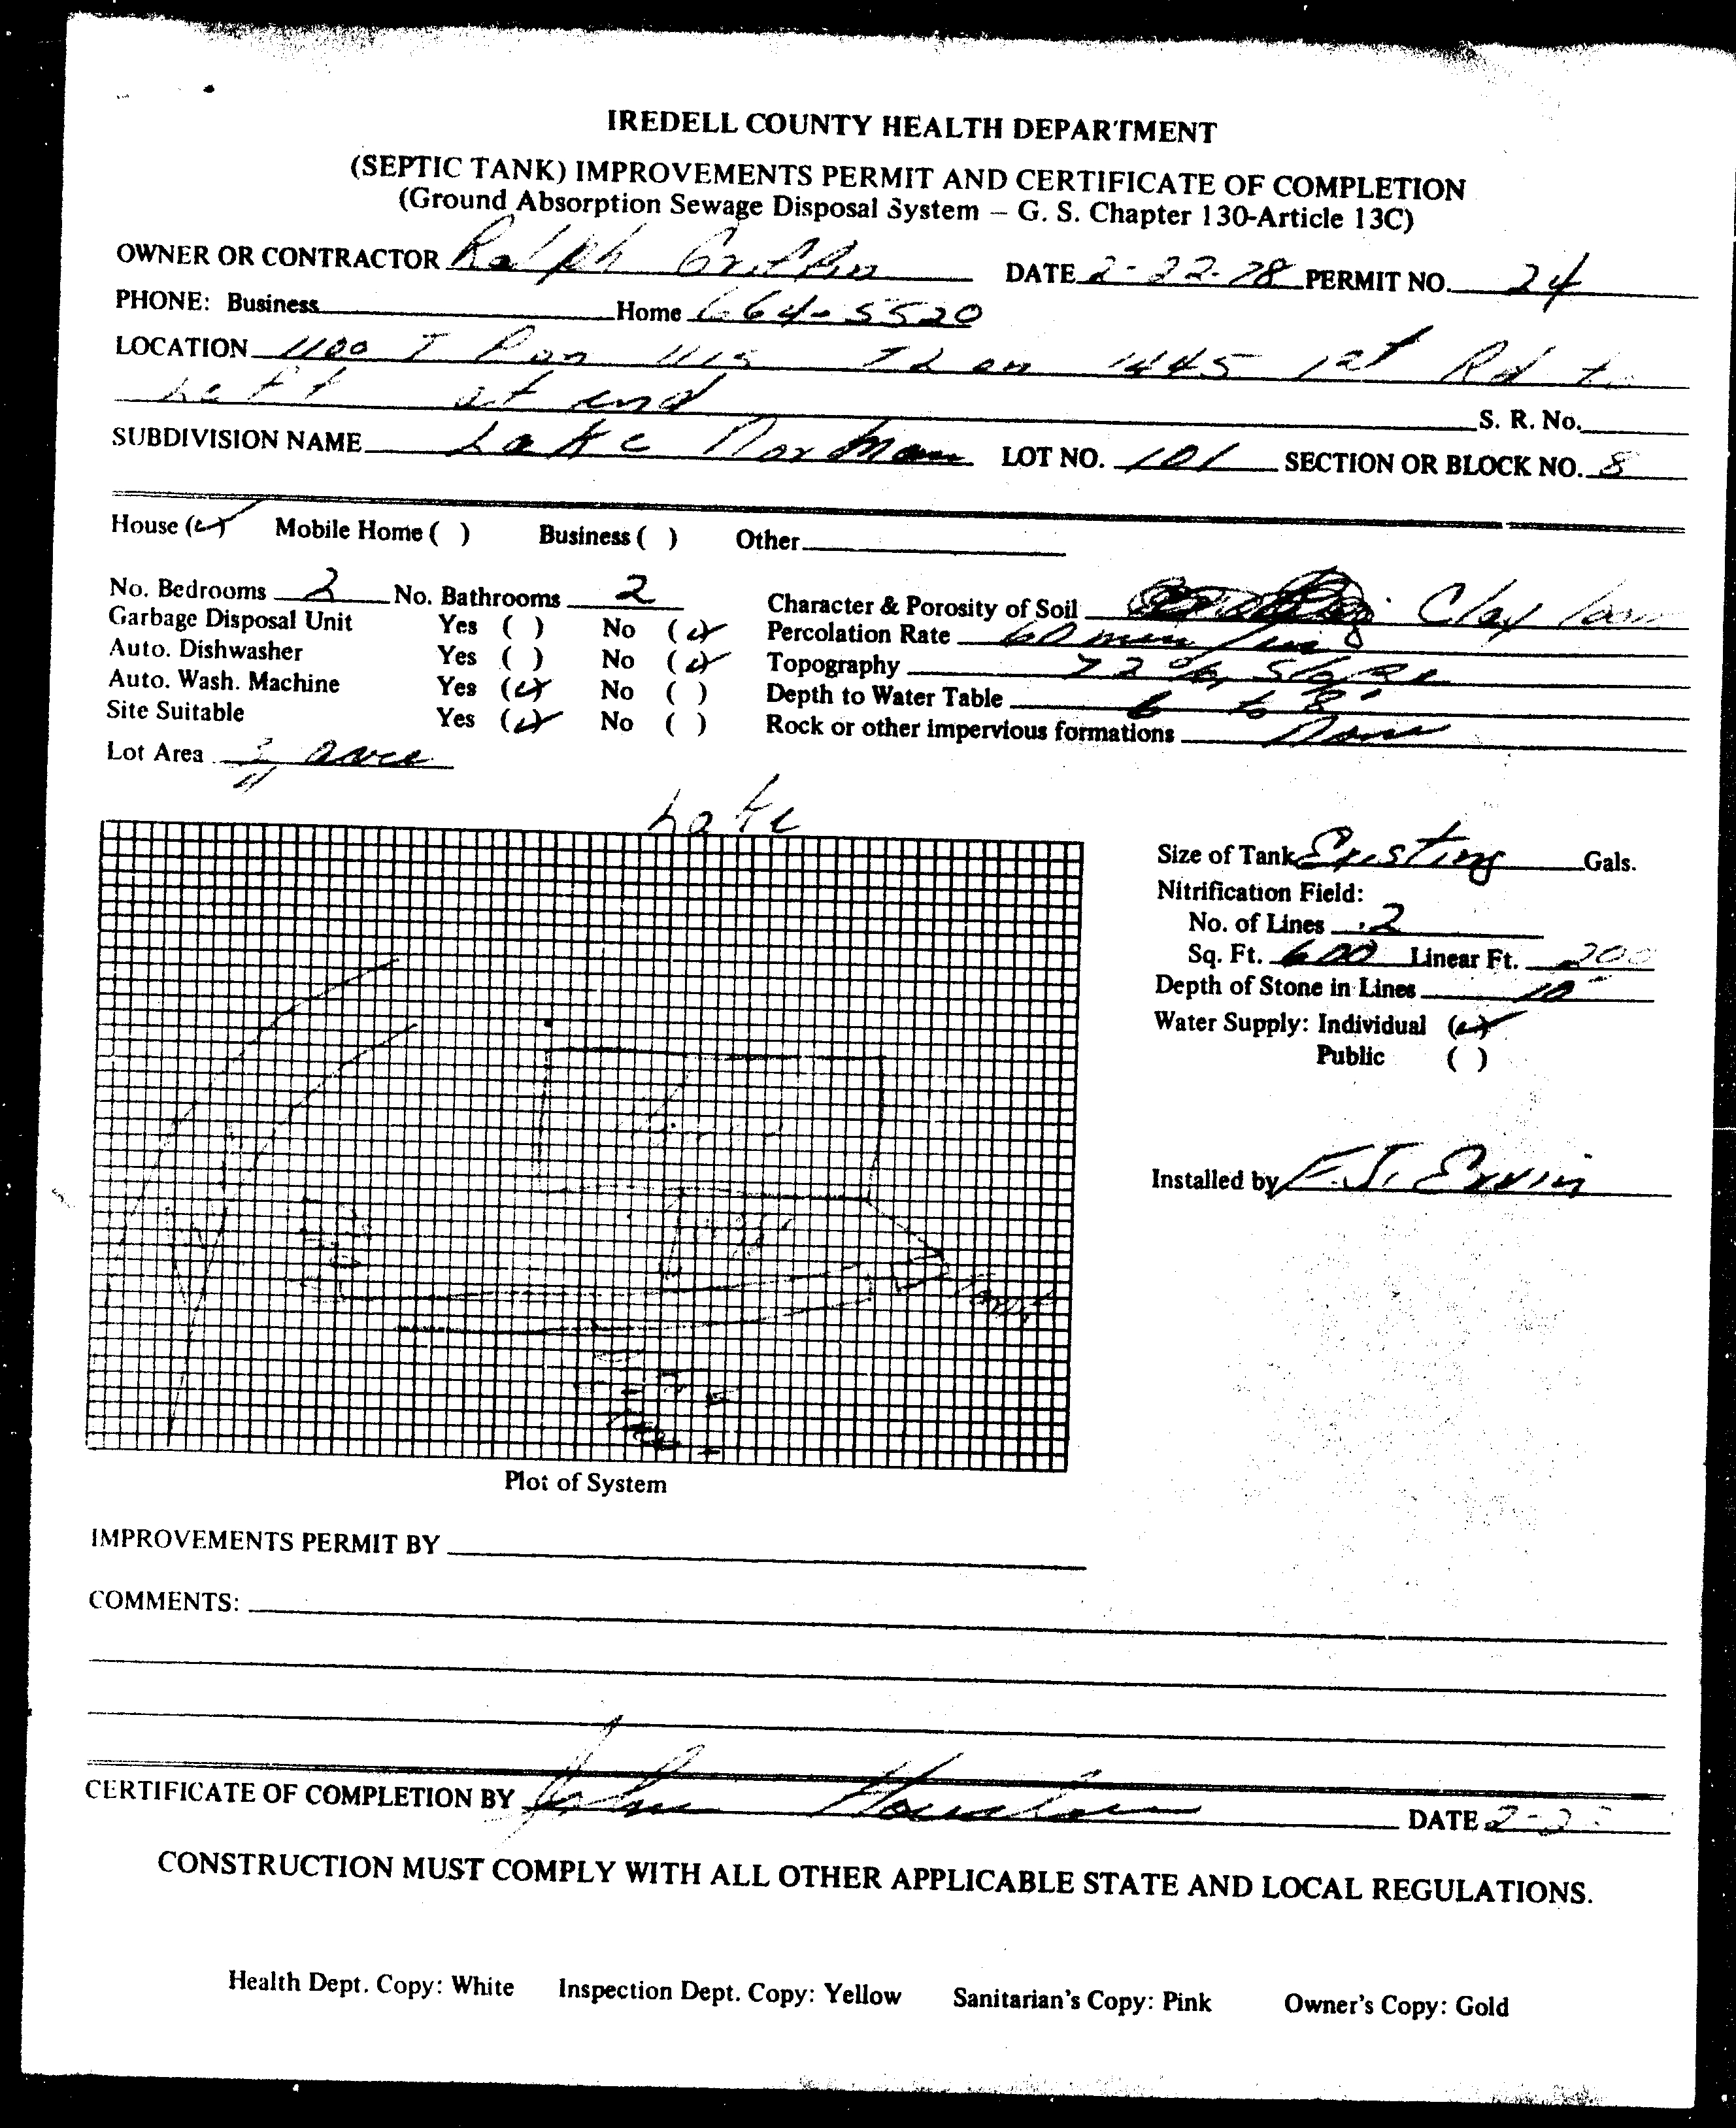 IREDELL COUNTY HEALTH DEPARTMENT
(SEPTIC TANK) IMPROVEMENTS PERMIT AND CERTIFICATE OF COMPLETION
(Ground Absorption Sewage Disposal System – G. S. Chapter 130-Article 13C)
OWNER OR CONTRACTOR Ralph Griffin DATE 2-22-78 PERMIT NO. 24
PHONE: Business Home 664-5520
LOCATION 1100 T R on 1115 TL on 1445 1st Rd to
Left at end S. R. No.
SUBDIVISION NAME Lake Norman LOT NO. 101 SECTION OR BLOCK NO. 8
House (✓) Mobile Home ( ) Business ( ) Other
No. Bedrooms 2 No. Bathrooms 2 Character & Porosity of Soil Clay loam
Garbage Disposal Unit Yes ( ) No (✓) Percolation Rate 60 min/in
Auto. Dishwasher Yes ( ) No (✓) Topography 72% Slope
Auto. Wash. Machine Yes (✓) No ( ) Depth to Water Table 6 to 8'
Site Suitable Yes (✓) No ( ) Rock or other impervious formations None
Lot Area acre
Lake
Size of Tank Existing Gals.
Nitrification Field:
No. of Lines 2
Sq. Ft. 600 Linear Ft. 200
Depth of Stone in Lines 10"
Water Supply: Individual (✓)
Public ( )
Installed by F.J. Ervin
Plot of System
IMPROVEMENTS PERMIT BY
COMMENTS:
CERTIFICATE OF COMPLETION BY John DATE 2-2
CONSTRUCTION MUST COMPLY WITH ALL OTHER APPLICABLE STATE AND LOCAL REGULATIONS.
Health Dept. Copy: White Inspection Dept. Copy: Yellow Sanitarian's Copy: Pink Owner's Copy: Gold